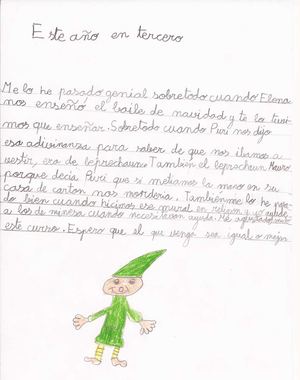 Este año en tercero
Me lo he pasado genial sobretodo cuando Elena
nos enseñó el baile de navidad y te lo tuvi
mos que enseñar. Sobretodo cuando Puri nos dijo
esa adivinanza para saber de que nos ibamos a
vestir, era de leprechaun. También el leprechaun Mauro
porque decia Puri que si metiamos la mano en su
casa de carton nos morderia. Tambien me lo he pasa
do bien cuando hicimos ese mural en religion y yo ayude
a los de mi mesa cuando necesitavan ayuda. Me a gustado
este curso. Espero que el que venga sea igual o mejor.